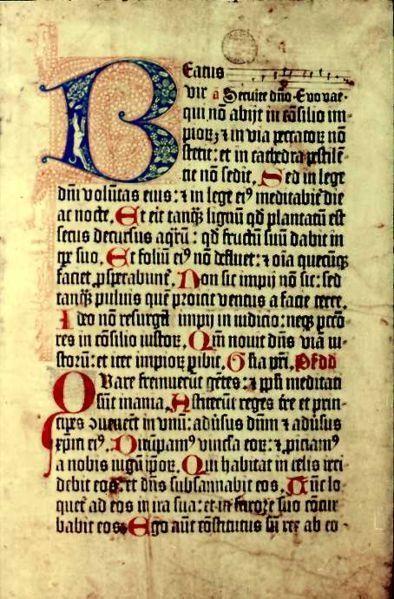 Beatus
vir a Seruite dño. Evovae.
qui nõ abijt in cõsilio im-
pioꝝ ⁊ in via peccatoꝝ nõ
stetit: et in cathedra pestilẽ-
tie nõ sedit, Sed in lege
dñi volũtas eius: ⁊ in lege eiꝰ meditabiť die
ac nocte, Et erit tanq̃ lignũ qđ plantatũ est
secus decursus aq̃rũ: qđ fructũ suũ dabit in
tp̃e suo, Et foliũ eiꝰ nõ defluet: ⁊ oĩa quecũqꝫ
faciet ꝓsperabunť, Non sic impij nõ sic: sed
tanq̃ puluis quẽ proicit ventus a facie terre,
Ideo nõ resurgũt impij in iudicio: neqꝫ pccõ-
res in cõsilio iustoꝝ, Qm̃ nouit dñs viã iu-
storũ: et iter impioꝝ ꝑibit, Gľia pr̃i, Ps dd
Quare fremuerũt gẽtes: ⁊ ppľi meditati
sũt inania, Astiterũt reges tr̃e et prin-
cipes ꝯuenerũt in vnũ: adũsus dñm ⁊ adũsus
xp̃m eiꝰ, Dirũpamꝰ vincľa eoꝝ: ⁊ ꝓiciamꝰ
a nobis iugũ ip̃oꝝ, Qui habitat in celis irri-
debit eos, et dñs subsannabit eos, Tũc lo-
queť ad eos in ira sua: et in furore suo cõtur-
babit eos, Ego aũt cõstitutus sũ rex ab eo